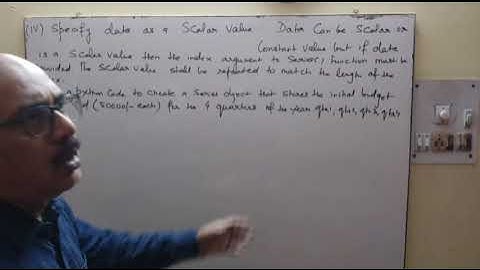 (IV) Specify data as a Scalar value Data Can be Scalar or
(constant value) but if data
is a Scalar value then the index argument to Series() function must be
provided The Scalar value shall be repeated to match the length of the
python Code to create a Series object that stores the initial budget
(50000/- each) for the 4 quarters of the year qtr1, qtr2, qtr3, qtr4